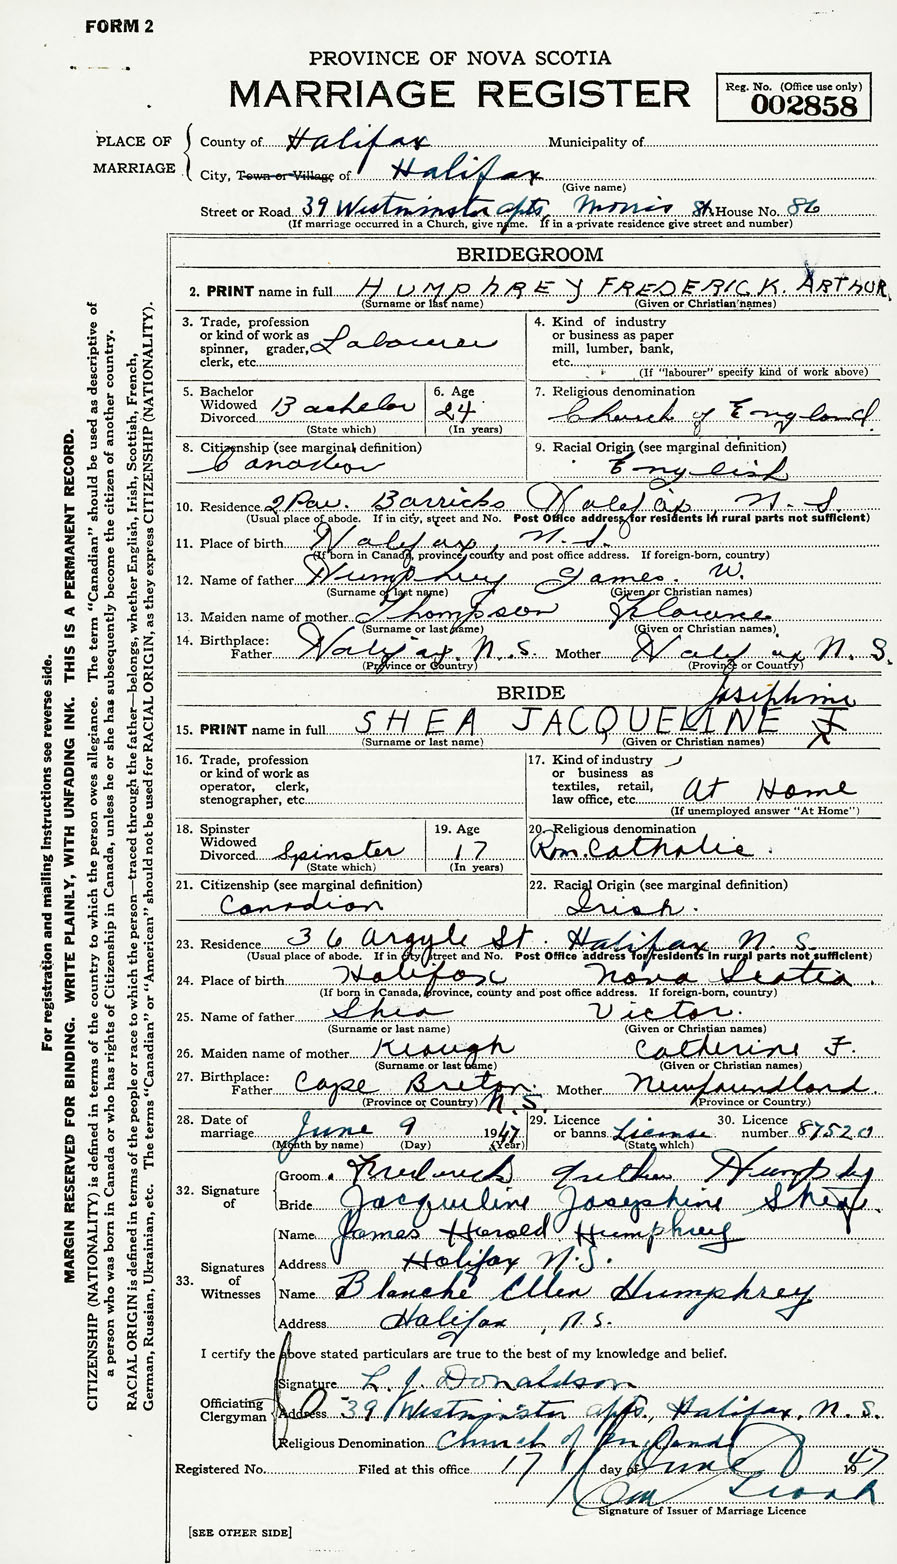 FORM 2
PROVINCE OF NOVA SCOTIA
MARRIAGE REGISTER
Reg. No. (Office use only)
002858
PLACE OF MARRIAGE
County of Halifax Municipality of
City, Town or Village of Halifax
(Give name)
Street or Road 39 Westminster Apts, Morris St. House No. 86
(If marriage occurred in a Church, give name. If in a private residence give street and number)
BRIDEGROOM
2. PRINT name in full HUMPHREY FREDERICK ARTHUR
(Surname or last name) (Given or Christian names)
3. Trade, profession or kind of work as spinner, grader, clerk, etc. Labourer
4. Kind of industry or business as paper mill, lumber, bank, etc.
(If "labourer" specify kind of work above)
5. Bachelor Widowed Divorced Bachelor
(State which)
6. Age 24
(In years)
7. Religious denomination
Church of England
8. Citizenship (see marginal definition)
Canadian
9. Racial Origin (see marginal definition)
English
10. Residence 2 Pav. Barricks Halifax, N. S.
(Usual place of abode. If in city, street and No. Post Office address for residents in rural parts not sufficient)
11. Place of birth Halifax, N.S.
(If born in Canada, province, county and post office address. If foreign-born, country)
12. Name of father Humphrey James. W.
(Surname or last name) (Given or Christian names)
13. Maiden name of mother Thompson Florence
(Surname or last name) (Given or Christian names)
14. Birthplace: Father Halifax N.S. Mother Halifax N.S.
(Province or Country) (Province or Country)
BRIDE
Josephine
15. PRINT name in full SHEA JACQUELINE J
(Surname or last name) (Given or Christian names)
16. Trade, profession or kind of work as operator, clerk, stenographer, etc.
17. Kind of industry or business as textiles, retail, law office, etc. At Home
(If unemployed answer "At Home")
18. Spinster Widowed Divorced Spinster
(State which)
19. Age 17
(In years)
20. Religious denomination
Rom. Catholic.
21. Citizenship (see marginal definition)
Canadian
22. Racial Origin (see marginal definition)
Irish.
23. Residence 36 Argyle St. Halifax N. S.
(Usual place of abode. If in city street and No. Post Office address for residents in rural parts not sufficient)
24. Place of birth Halifax Nova Scotia.
(If born in Canada, province, county and post office address. If foreign-born, country)
25. Name of father Shea Victor.
(Surname or last name) (Given or Christian names)
26. Maiden name of mother Keough Catherine F.
(Surname or last name) (Given or Christian names)
27. Birthplace: Father Cape Breton. N.S. Mother Newfoundland.
(Province or Country) (Province or Country)
28. Date of marriage June 9 1947
(Month by name) (Day) (Year)
29. Licence or banns License
(State which)
30. Licence number 87520
32. Signature of
Groom Frederick Arthur Humphrey
Bride Jacqueline Josephine Shea.
33. Signatures of Witnesses
Name James Harold Humphrey
Address Halifax N.S.
Name Blanche Ellen Humphrey
Address Halifax, N.S.
I certify the above stated particulars are true to the best of my knowledge and belief.
Officiating Clergyman
Signature L. J. Donaldson
Address 39 Westminster Apts., Halifax, N.S.
Religious Denomination Church of England
Registered No. Filed at this office 17 day of June 1947
Signature of Issuer of Marriage Licence
[SEE OTHER SIDE]
For registration and mailing instructions see reverse side.
MARGIN RESERVED FOR BINDING. WRITE PLAINLY, WITH UNFADING INK. THIS IS A PERMANENT RECORD.
CITIZENSHIP (NATIONALITY) is defined in terms of the country to which the person owes allegiance. The term "Canadian" should be used as descriptive of
a person who was born in Canada or who has rights of Citizenship in Canada, unless he or she has subsequently become the citizen of another country.
RACIAL ORIGIN is defined in terms of the people or race to which the person—traced through the father—belongs, whether English, Irish, Scottish, French,
German, Russian, Ukrainian, etc. The terms "Canadian" or "American" should not be used for RACIAL ORIGIN, as they express CITIZENSHIP (NATIONALITY).